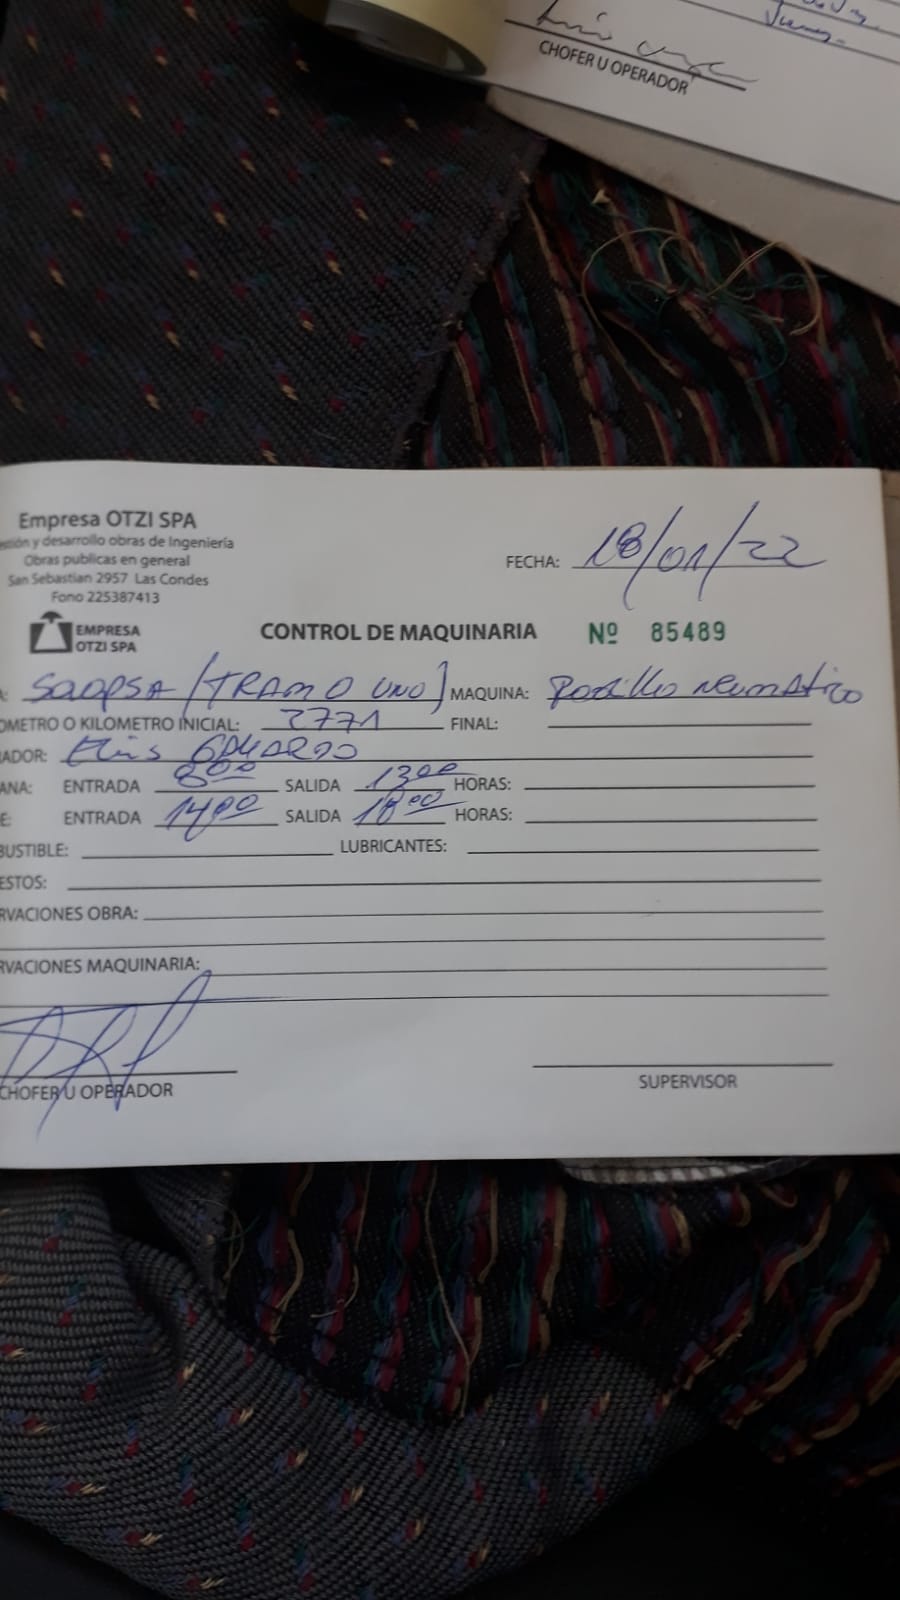 CHOFER U OPERADOR
Empresa OTZI SPA
y desarrollo obras de Ingeniería
Obras publicas en general
San Sebastian 2957 Las Condes
Fono 225387413
FECHA: 18/01/22
EMPRESA
OTZI SPA
CONTROL DE MAQUINARIA Nº 85489
(TRAMO UNO) MAQUINA: Rodillo neumatico
OMETRO O KILOMETRO INICIAL: 2771 FINAL:
ADOR: Elis
ANA: ENTRADA 8:00 SALIDA 13:00 HORAS:
E: ENTRADA 14:00 SALIDA 18:00 HORAS:
BUSTIBLE: LUBRICANTES:
ESTOS:
RVACIONES OBRA:
RVACIONES MAQUINARIA:
CHOFER U OPERADOR
SUPERVISOR